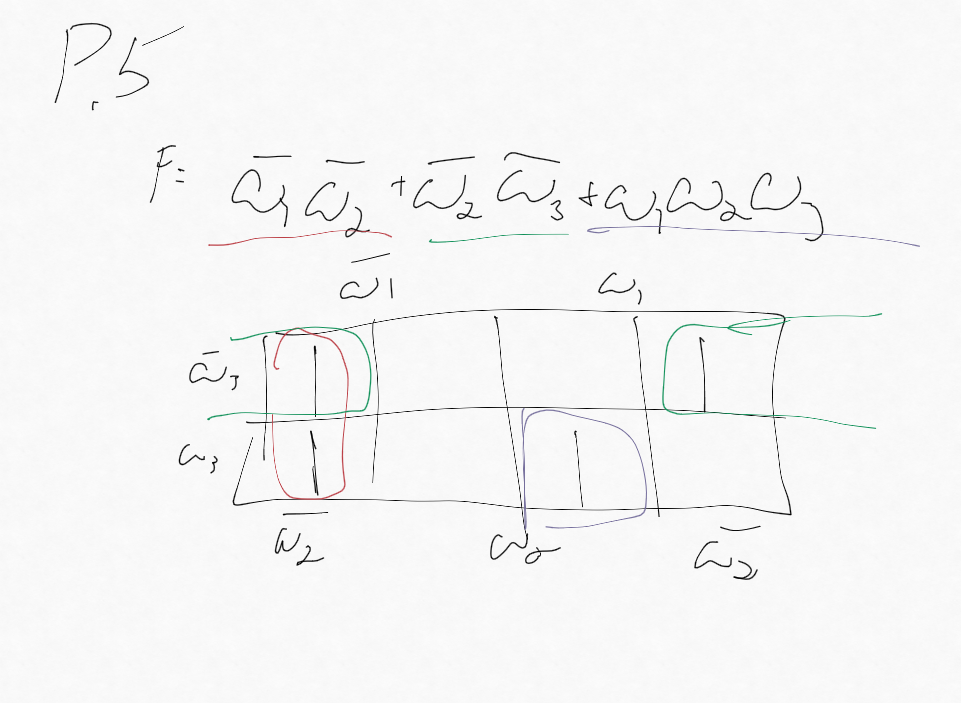 P.5
F= ω̅₁ ω̅₂ + ω̅₂ ω̅₃ + ω₁ω₂ω₃
ω̅1 ω₁
ω̅₃ 1 1
ω₃ 1 1
ω̅₂ ω₂ ω̅₂